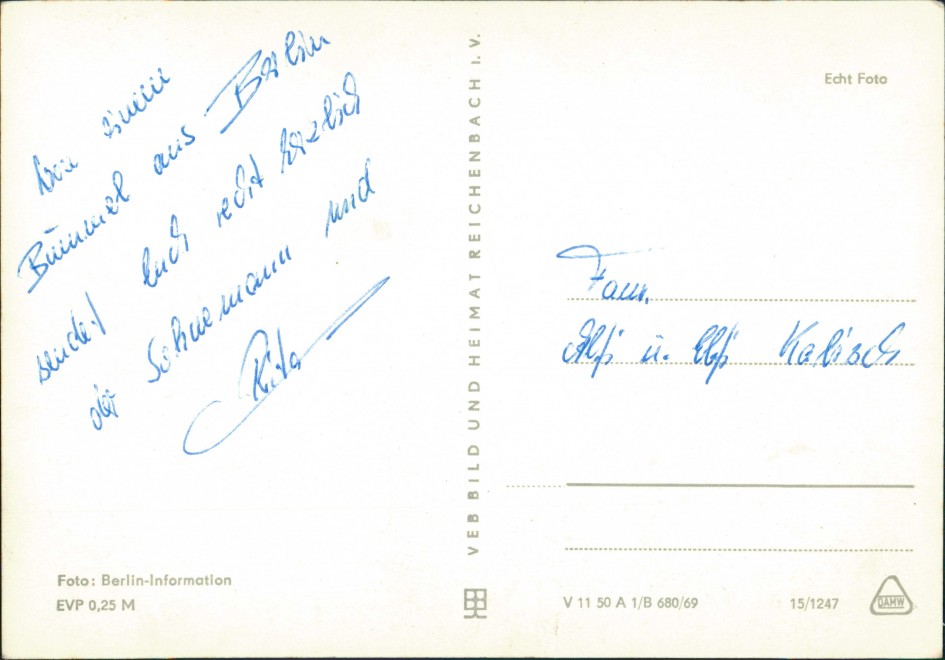 Von einem
Bummel aus Berlin
sendet Euch recht herzlich
der Schnemann und
Rita
Echt Foto
Fam.
u. Kalisch
VEB BILD UND HEIMAT REICHENBACH I. V.
Foto: Berlin-Information
EVP 0,25 M
V 11 50 A 1/B 680/69
15/1247
DAMW